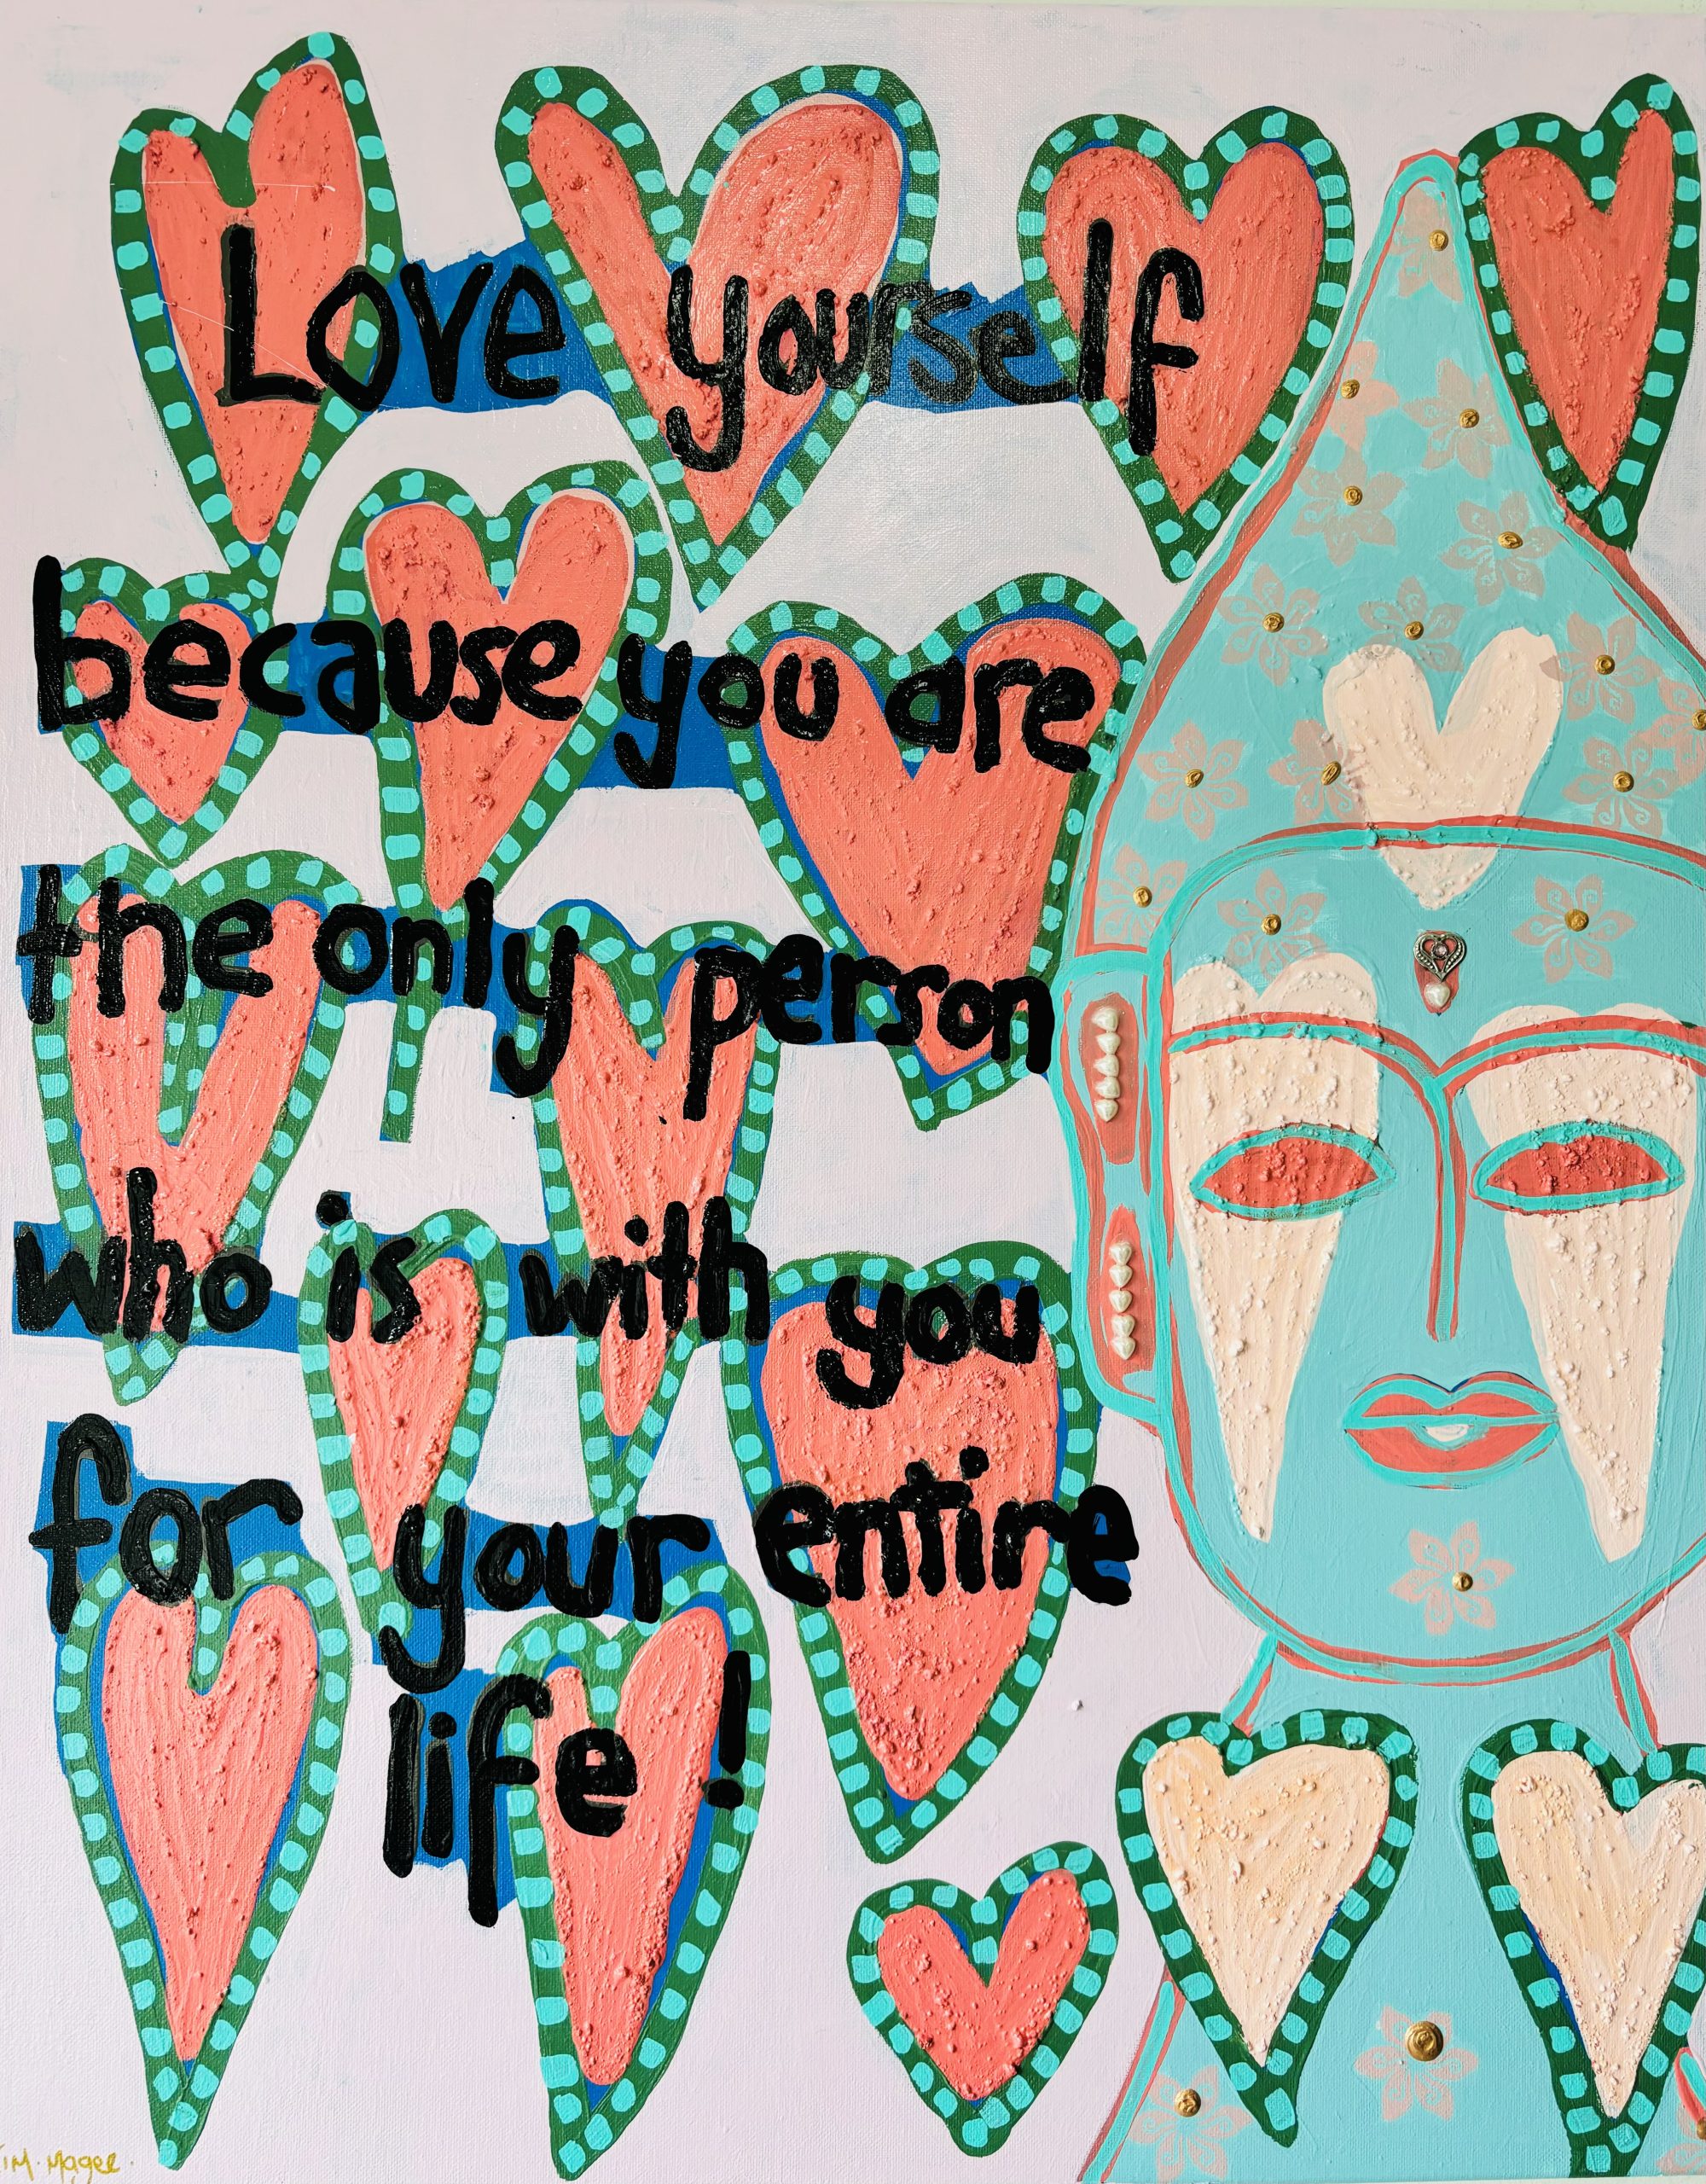 Love yourself
because you are
the only person
who is with you
for your entire
life!
Magee.